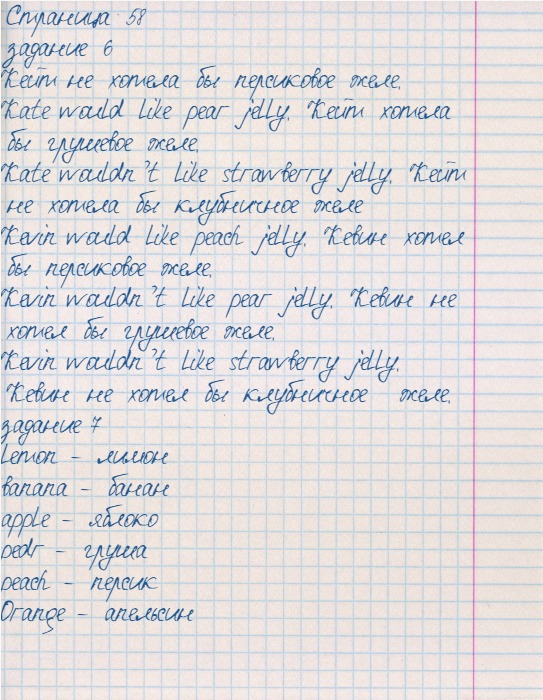 Страница 58
задание 6
Кейти не хотела бы персиковое желе.
Kate would like pear jelly. Кейти хотела
бы грушевое желе.
Kate wouldn't like strawberry jelly. Кейти
не хотела бы клубничное желе
Kevin would like peach jelly. Кевин хотел
бы персиковое желе.
Kevin wouldn't like pear jelly. Кевин не
хотел бы грушевое желе.
Kevin wouldn't like strawberry jelly.
Кевин не хотел бы клубничное желе.
задание 7
Lemon - лимон
banana - банан
apple - яблоко
pear - груша
peach - персик
Orange - апельсин